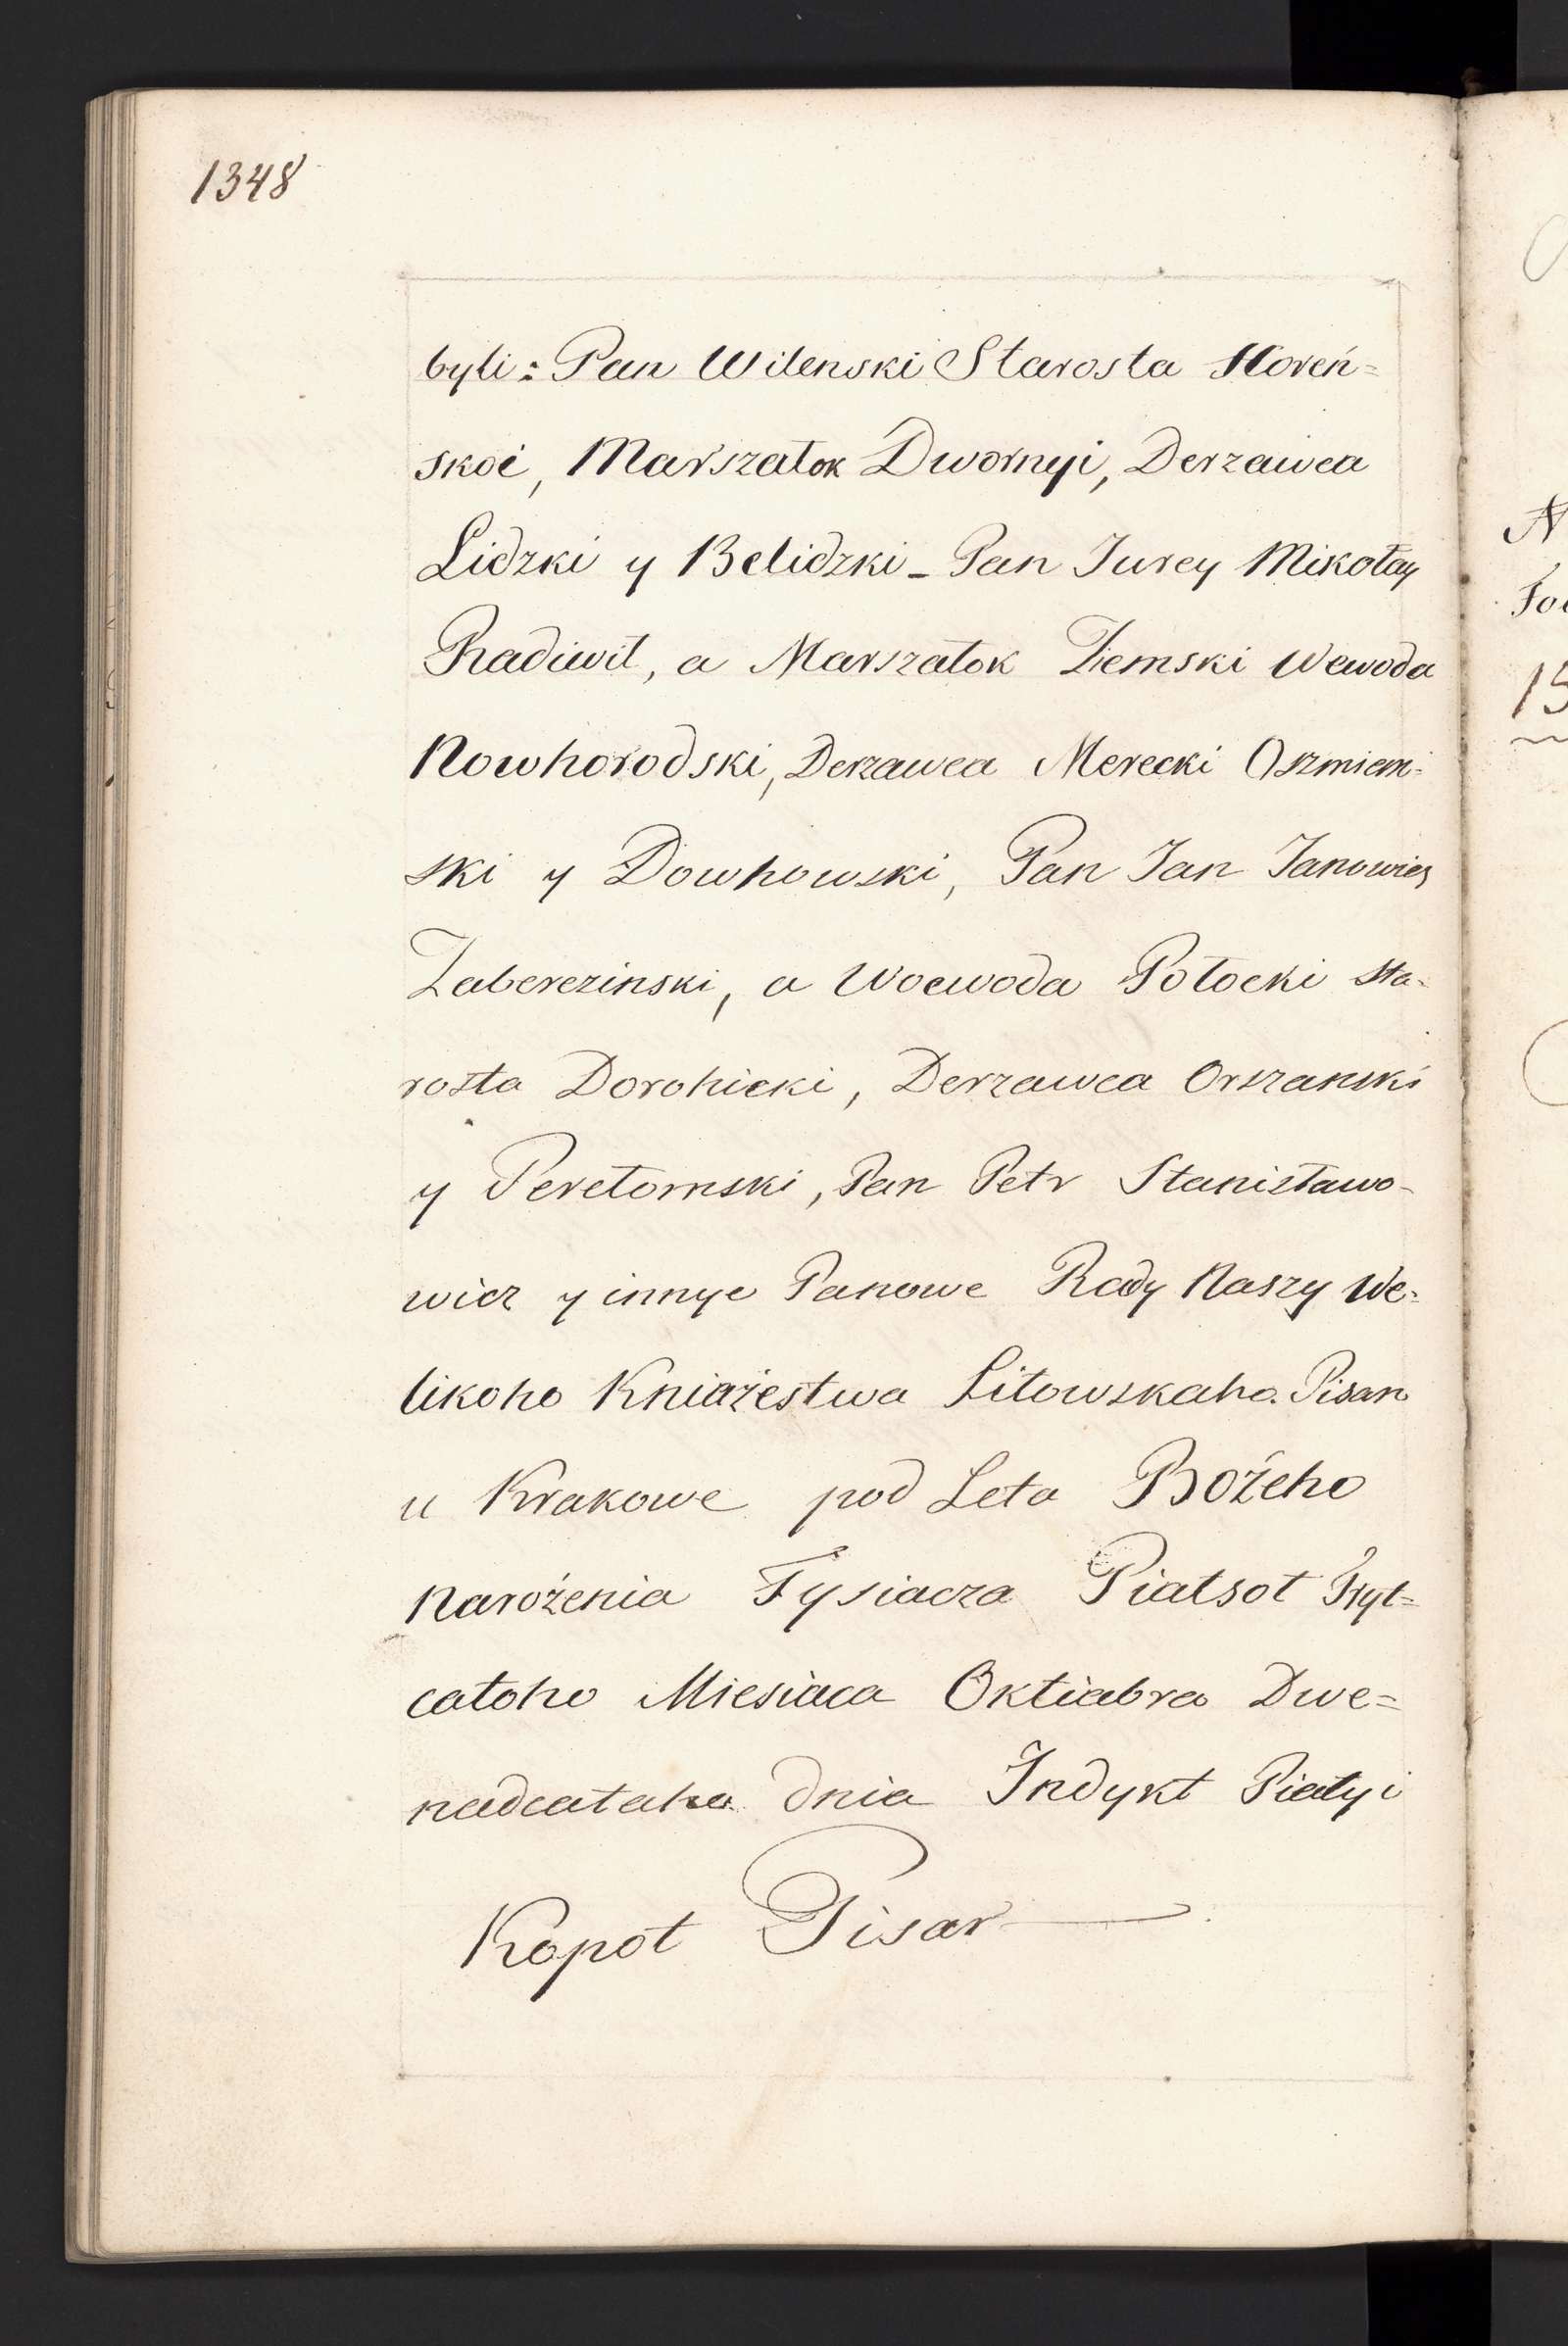 1348
byli: Pan Wilenski Starosta Horeń=
skoi, Marszałok Dwornyi, Derzawca
Lidzki y Belidzki - Pan Jurey Mikołay
Radiwił, a Marszałok Ziemski Wewoda
Nowhorodski, Derzawca Merecki Oszmien=
ski y Dowhowski, Pan Jan Janowicz
Zaberezinski, a Woewoda Połocki Sta=
rosta Dorohicki, Derzawca Orszanski
y Perełomski, Pan Petr Stanisławo-
wicz y innye Panowe Rady Naszy We=
likoho Kniażestwa Litowskaho. Pisan
u Krakowe pod Leta Bożeho
Narożenia Tysiacza Piatsot Tryt=
catoho Miesiaca Oktiabra Dwe=
nadcataho dnia Indykt Piatyi
Kopot Pisar
N
15